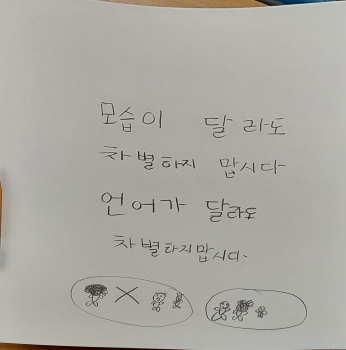 모습이 달라도
차별하지 맙시다
언어가 달라도
차별하지맙시다.